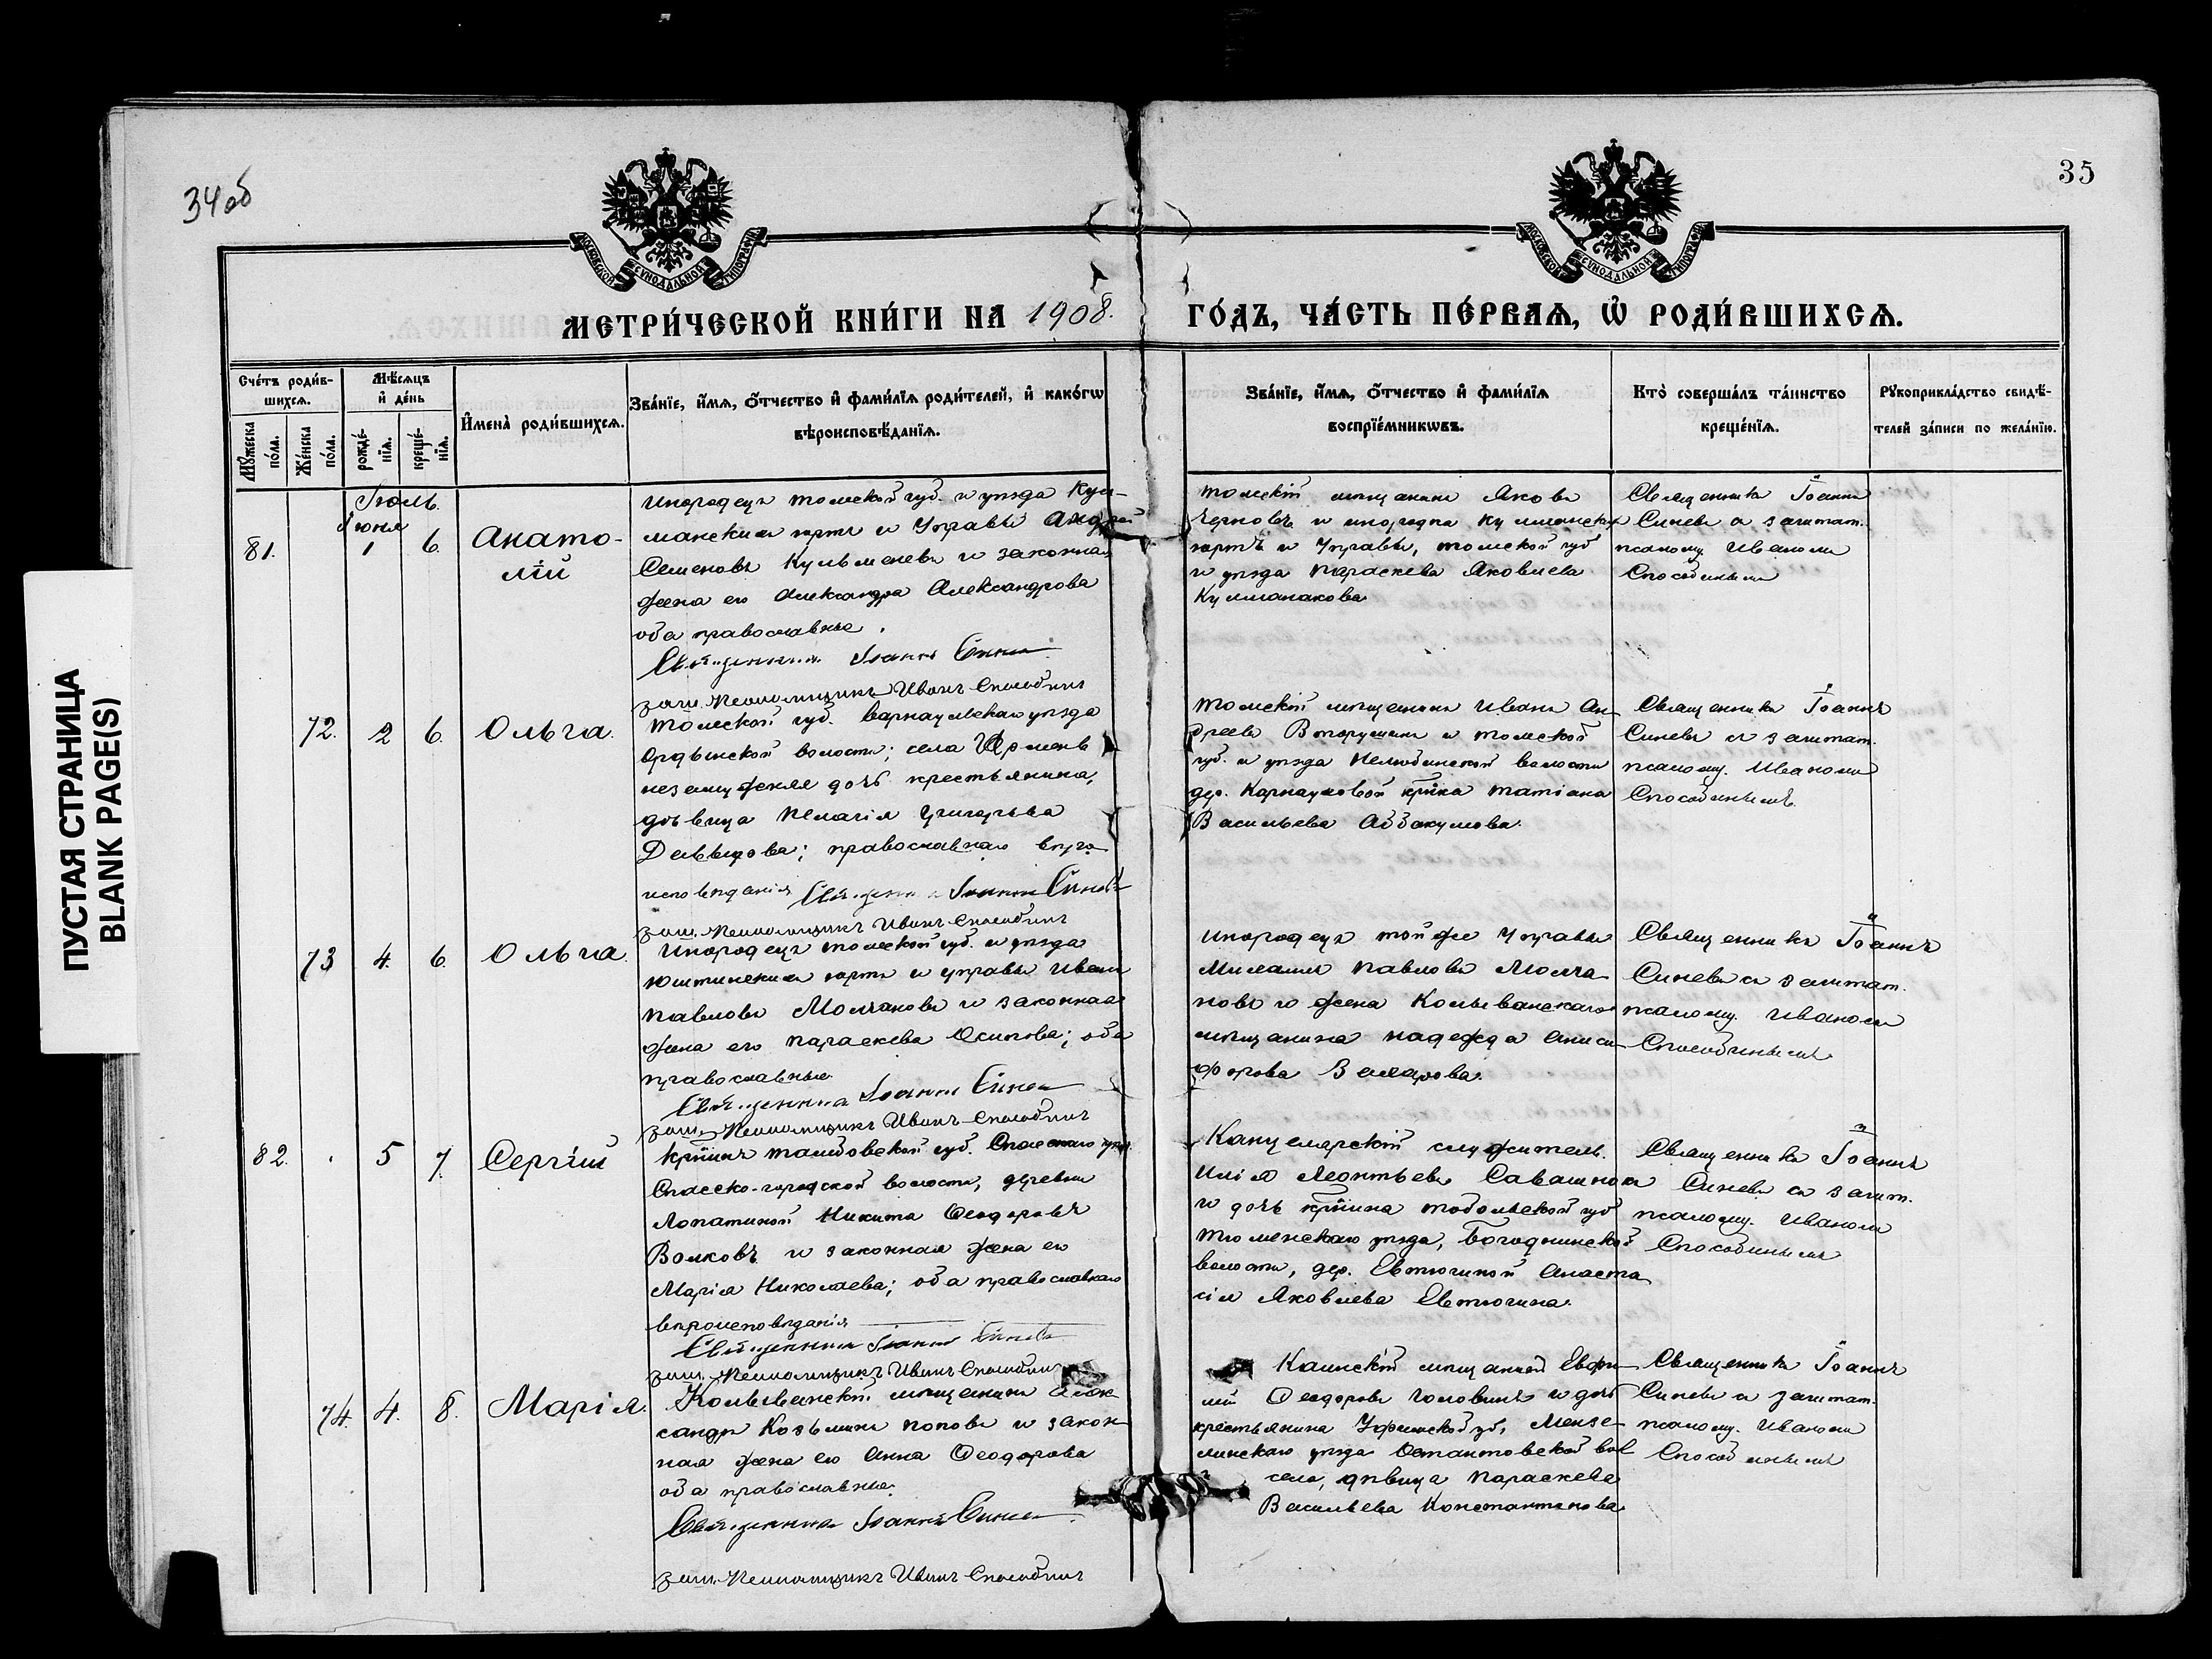 34об
35
МОСКОВСКОЙ СѴНОДАЛЬНОЙ ТИПОГРАФІИ
МОСКОВСКОЙ СѴНОДАЛЬНОЙ ТИПОГРАФІИ
МЕТРИ́ЧЕСКОЙ КНИ́ГИ НА 1908.
ГО́ДЪ, ЧА́СТЬ ПЕ́РВАѦ, Ѡ҆ РОДИ́ВШИХСѦ.
Сче́тъ роди́в-
шихсѧ.
Мꙋ́жеска по́ла.
Же́нска по́ла.
Мѣ́сѧцъ
и҆ де́нь
рожде́-нїѧ.
креще́-нїѧ.
И҆мена̀ роди́вшихсѧ.
Зва́нїе, и҆́мѧ, ѻ҆́тчество и҆ фами́лїѧ роди́телей, и҆ како́гѡ
вѣроисповѣ́данїѧ.
Зва́нїе, и҆́мѧ, ѻ҆́тчество и҆ фами́лїѧ
воспрїе́мникѡвъ.
Кто̀ соверша́лъ та́инство
креще́нїѧ.
Рꙋкоприкла́дство свидѣ́-
телей за́писи по жела́нїю.
ПУСТАЯ СТРАНИЦА
BLANK PAGE(S)
Іюль.
Іюня
81. 1 6. Анато-
лій
Инородецъ Томской губ. и уѣзда Кул-
манскихъ юртъ и Управы Андрей
Семеновъ Кульменевъ и законная
жена его Александра Александрова
оба православные.
Священникъ Іоаннъ Синевъ
заш. Псаломщикъ Иванъ Способинъ
Томскій мѣщанинъ Яковъ
Черновъ и инородка Кулманскихъ
юртъ и Управы, Томской губ
и уѣзда Параскева Яковлева
Кулманакова.
Священникъ Іоаннъ
Синевъ съ заштат.
псаломщ. Иваномъ
Способинымъ
72. 2 6. Ольга.
Томской губ. Барнаульскаго уѣзда
Ордынской волости; села
незамужняя дочь крестьянина,
дѣвица Пелагія Григорьева
Давыдова; православнаго вѣро
исповѣданія Священникъ Іоаннъ Синевъ
заш. Псаломщикъ Иванъ Способинъ
Томскій мѣщанинъ Иванъ Ан-
дреевъ Вторушинъ и Томской
губ. и уѣзда Нелюбинской волости
дер. Карнауховой кр̃нка Татіана
Васильева Аввакумова.
Священникъ Іоаннъ
Синевъ съ заштат.
псаломщ. Иваномъ
Способинымъ.
73 4. 6. Ольга.
Инородецъ Томской губ. и уѣзда
юртъ и управы Иванъ
Павловъ Молчановъ и законная
жена его Параскева Осипова; оба
православные.
Священникъ Іоаннъ Синевъ
заш. Псаломщикъ Иванъ Способинъ
Инородецъ той же Управы
Михаилъ Павловъ Молча-
новъ и жена Колыванскаго
мѣщанина Надежда Ониси-
форова
Священникъ Іоаннъ
Синевъ съ заштат.
псаломщ. Иваномъ
Способинымъ
82. 5 7. Сергій
Кр̃нинъ Тамбовской губ. Спасскаго уѣз.
Спасско-городской волости, деревни
Лопатиной Никита Ѳеодоровъ
Волковъ и законная жена его
Марія Николаева; оба православнаго
вѣроисповѣданія
Священникъ Іоаннъ Синевъ
заш. Псаломщикъ Иванъ Способинъ
Канцелярскій служитель.
Илія Леонтьевъ
и дочь кр̃нина Тобольской губ
Тюменскаго уѣзда, Богандинской
волости, дер. Евтюгиной Анаста
сія Яковлева Евтюгина.
Священникъ Іоаннъ
Синевъ съ зашт.
псаломщ. Иваномъ
Способинымъ
74. 4. 8. Марія.
Колыванскій мѣщанинъ Алек
сандръ Козьминъ Поповъ и закон
ная жена его Анна Ѳеодорова
оба православные.
Священникъ Іоаннъ Синевъ
заш. Псаломщикъ Иванъ Способинъ
Каинскій мѣщанинъ Евфи-
мій Ѳеодоровъ Головинъ и дочь
крестьянина Уфимской губ, Мензе-
линскаго уѣзда вол
села, дѣвица Параскева
Васильева Константинова
Священникъ Іоаннъ
Синевъ съ заштат.
псаломщ. Иваномъ
Способинымъ